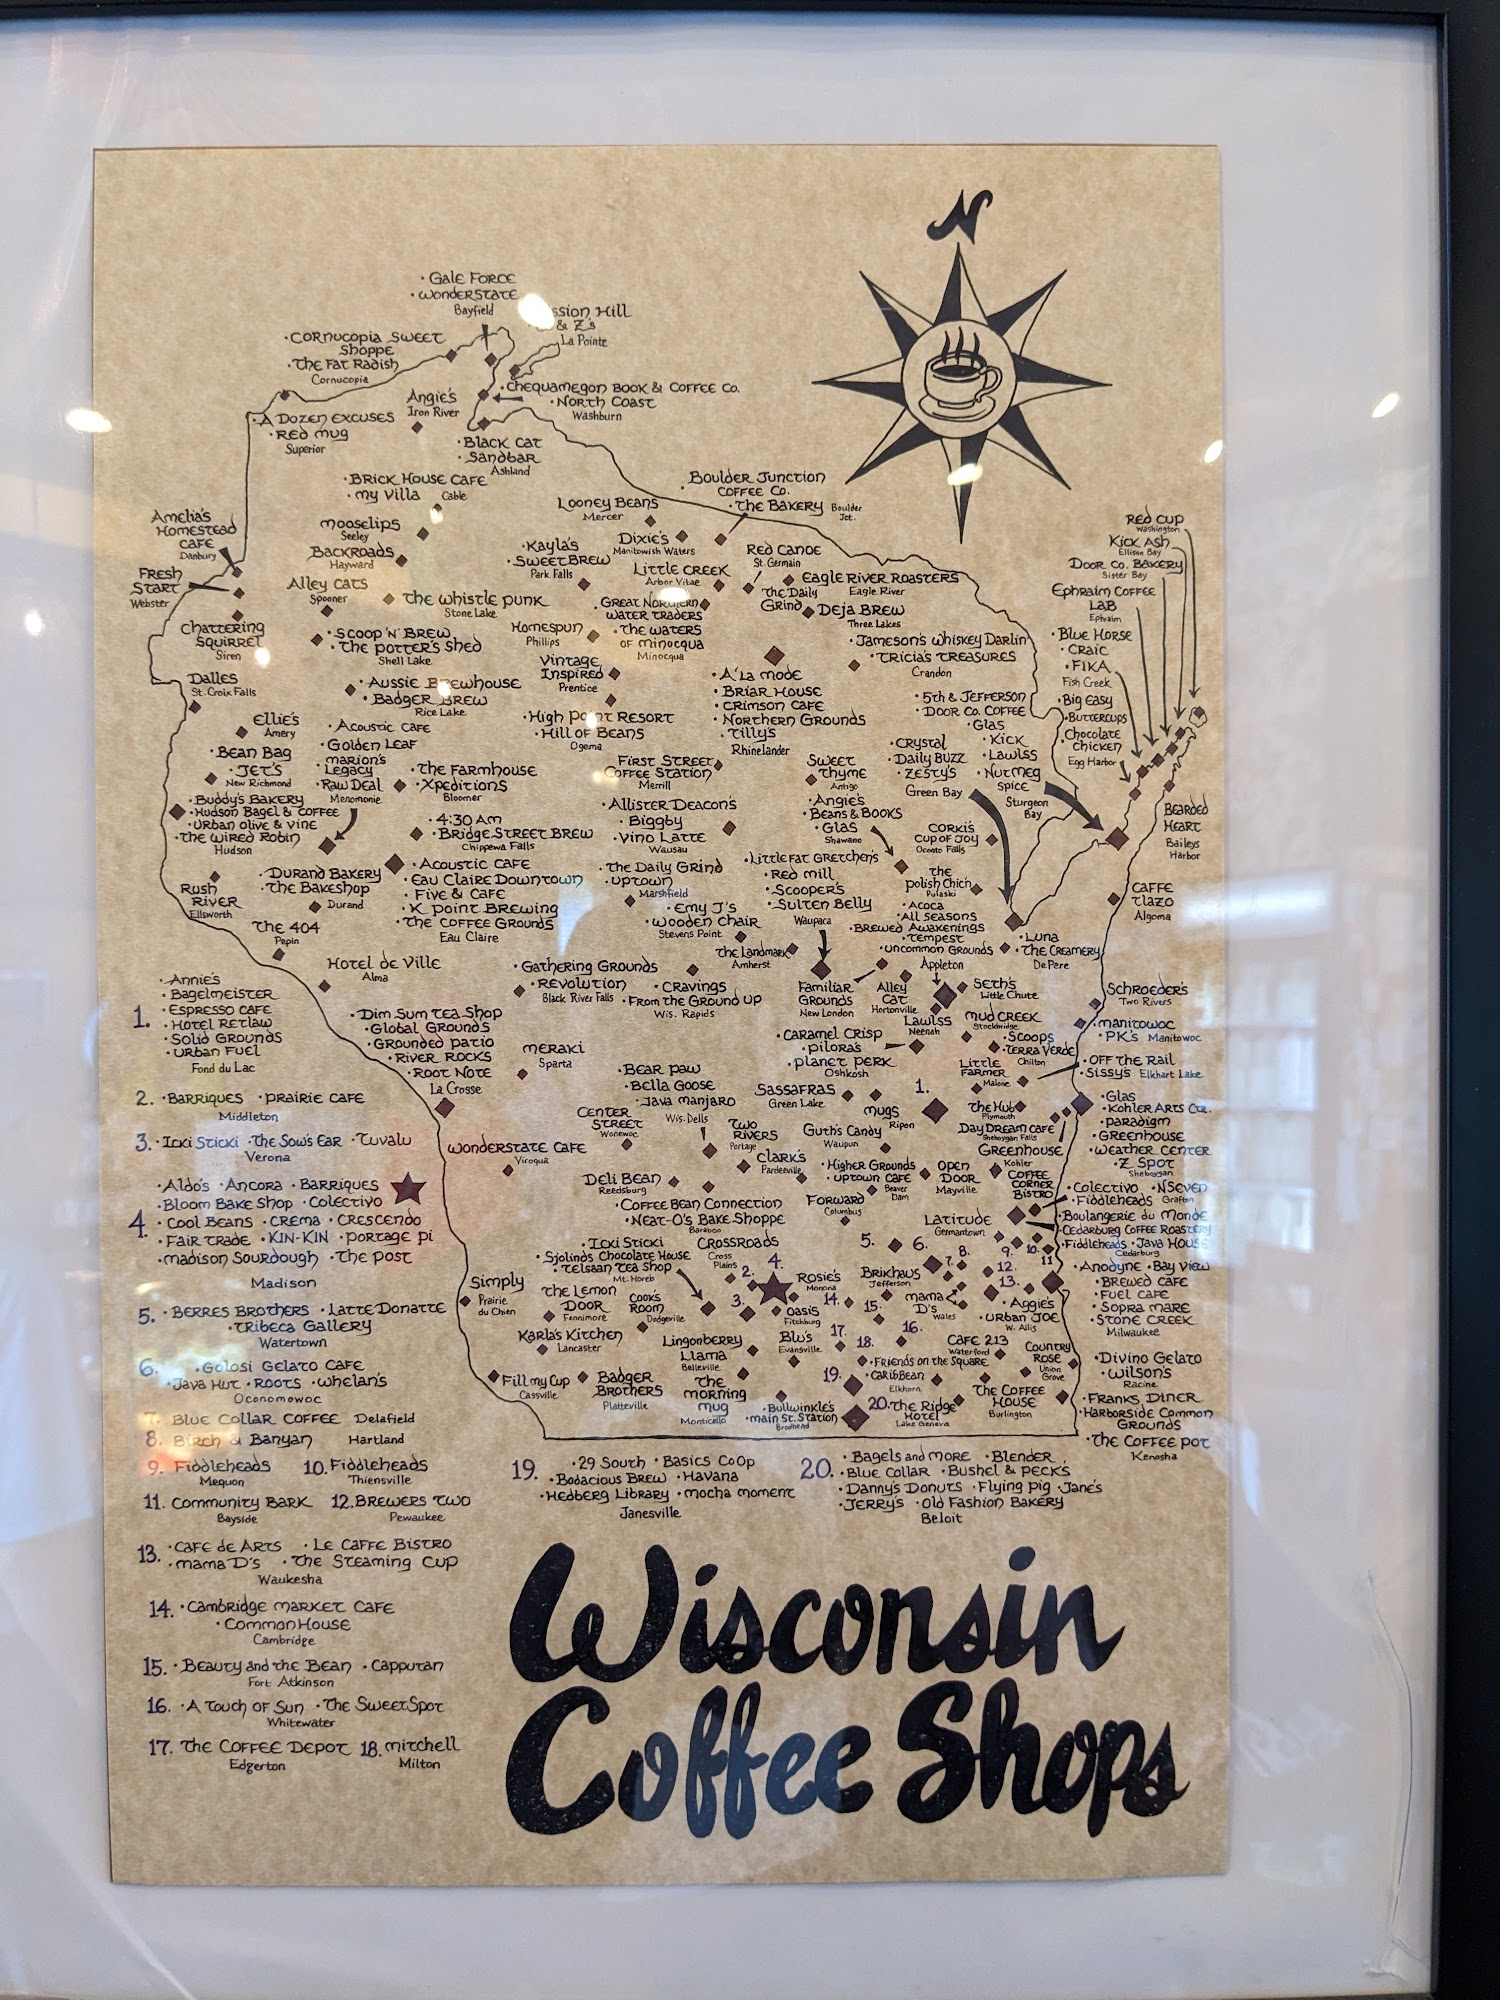 N
· Gale Force
· Wonderstate
Bayfield
ssion Hill
& Z's
La Pointe
· Cornucopia Sweet
Shoppe
· The Fat Radish
Cornucopia
Angie's
Iron River
· Chequamegon Book & Coffee Co.
· North Coast
Washburn
· A Dozen Excuses
· Red Mug
Superior
· Black Cat
· Sandbar
Ashland
· Brick House Cafe
· My Villa Cable
Boulder Junction
Coffee Co.
· The Bakery Boulder
Jct.
Looney Beans
Mercer
Amelia's
Homestead
Cafe
Danbury
Mooselips
Seeley
Backroads
Hayward
· Kayla's
· Sweet Brew
Park Falls
Dixie's
Manitowish Waters
Red Canoe
St. Germain
Red Cup
Washington
Kick Ash
Ellison Bay
Door Co. Bakery
Sister Bay
Ephraim Coffee
Lab
Ephraim
Fresh
Start
Webster
Alley Cats
Spooner
The Whistle Punk
Stone Lake
Little Creek
Arbor Vitae
Eagle River Roasters
Eagle River
· The Daily
Grind
Deja Brew
Three Lakes
· Great Northern
Water Traders
· The Waters
of Minocqua
Minocqua
Chattering
Squirrel
Siren
· Scoop 'N' Brew
· The Potter's Shed
Shell Lake
Homespun
Phillips
· Jameson's Whiskey Darlin
· Tricia's Treasures
Crandon
· Blue Horse
· Craic
· Fika
Fish Creek
Dalles
St. Croix Falls
· Aussie Brewhouse
· Badger Brew
Rice Lake
Vintage
Inspired
Prentice
· A' La Mode
· Briar House
· Crimson Cafe
· Northern Grounds
· Tilly's
Rhinelander
· Big Easy
· Buttercups
· Chocolate
Chicken
Egg Harbor
Ellie's
Amery
· High Point Resort
· Hill of Beans
Ogema
· 5th & Jefferson
· Door Co. Coffee
· Glas
· Kick
· Lawlss
· Nutmeg
Spice
Sturgeon
Bay
· Acoustic Cafe
· Golden Leaf
· Marion's
Legacy
· Raw Deal
Menomonie
· Bean Bag
· Jet's
New Richmond
· The Farmhouse
· Xpeditions
Bloomer
First Street
Coffee Station
Merrill
Sweet
Thyme
Antigo
· Crystal
· Daily Buzz
· Zesty's
Green Bay
· Buddy's Bakery
· Hudson Bagel & Coffee
· Urban Olive & Vine
· The Wired Robin
Hudson
· 4:30 AM
· Bridge Street Brew
Chippewa Falls
· Allister Deacon's
· Biggby
· Vino Latte
Wausau
· Angie's
Beans & Books
· Glas
Shawano
Corki's
Cup of Joy
Oconto Falls
Bearded
Heart
Baileys
Harbor
· Durand Bakery
· The Bakeshop
Durand
· Acoustic Cafe
· Eau Claire Downtown
· Five & Cafe
· K Point Brewing
· The Coffee Grounds
Eau Claire
· The Daily Grind
· Uptown
Marshfield
· Little Fat Gretchen's
· Red Mill
· Scooper's
· Sulten Belly
Waupaca
The
Polish Chich
Pulaski
Caffe
Tlazo
Algoma
Rush
River
Ellsworth
· Emy J's
· Wooden Chair
Stevens Point
· Acoca
· All Seasons
· Brewed Awakenings
· Tempest
· Uncommon Grounds
Appleton
The 404
Pepin
The Landmark
Amherst
· Luna
· The Creamery
De Pere
Hotel de Ville
Alma
· Gathering Grounds
· Revolution
Black River Falls
· Cravings
· From the Ground Up
Wis. Rapids
Familiar
Grounds
New London
Alley
Cat
Hortonville
Seth's
Little Chute
Schroeder's
Two Rivers
1. · Annie's
· Bagelmeister
· Espresso Cafe
· Hotel Retlaw
· Solid Grounds
· Urban Fuel
Fond du Lac
· Dim Sum Tea Shop
· Global Grounds
· Grounded Patio
· River Rocks
· Root Note
La Crosse
Meraki
Sparta
Lawlss
Neenah
Mud Creek
Stockbridge
· Manitowoc
· PK's Manitowoc
· Caramel Crisp
· Pilora's
· Planet Perk
Oshkosh
· Scoops
· Terra Verde
Chilton
Little
Farmer
Malone
· Off the Rail
· Sissy's Elkhart Lake
2. · Barriques · Prairie Cafe
Middleton
· Bear Paw
· Bella Goose
· Java Manjaro
Wis. Dells
Sassafras
Green Lake
Mugs
Ripon
1.
The Hub
Plymouth
· Glas
· Kohler Arts Ctr.
· Paradigm
· Greenhouse
· Weather Center
· Z Spot
Sheboygan
3. · Icki Sticki · The Sow's Ear · Tuvalu
Verona
Wonderstate Cafe
Viroqua
Center
Street
Wonewoc
Two
Rivers
Portage
Guth's Candy
Waupun
Day Dream Cafe
Sheboygan Falls
Greenhouse
Kohler
Clark's
Pardeeville
· Higher Grounds
· Uptown Cafe
Beaver
Dam
Open
Door
Mayville
Coffee
Corner
Bistro
· Colectivo · NSeven
· Fiddleheads Grafton
4. · Aldo's · Ancora · Barriques
· Bloom Bake Shop · Colectivo
· Cool Beans · Crema · Crescendo
· Fair Trade · Kin-Kin · Portage Pi
· Madison Sourdough · The Post
Madison
Deli Bean
Reedsburg
· Coffee Bean Connection
· Neat-O's Bake Shoppe
Baraboo
Forward
Columbus
Latitude
Germantown
· Boulangerie du Monde
· Cedarburg Coffee Roastery
· Fiddleheads · Java House
Cedarburg
· Icki Sticki
· Sjolinds Chocolate House
· Telsaan Tea Shop
Mt. Horeb
Crossroads
Cross
Plains
2.
4.
3.
5.
6.
7.
8.
9.
10.
11.
12.
13.
Rosie's
Monona
Brikhaus
Jefferson
Mama
D's
Wales
· Anodyne · Bay View
· Brewed Cafe
· Fuel Cafe
· Sopra Mare
· Stone Creek
Milwaukee
Simply
Prairie
du Chien
The Lemon
Door
Fennimore
Cook's
Room
Dodgeville
Oasis
Fitchburg
14.
15.
16.
17.
18.
· Aggie's
· Urban Joe
W. Allis
5. · Berres Brothers · Latte Donatte
· Tribeca Gallery
Watertown
Karla's Kitchen
Lancaster
Lingonberry
Llama
Belleville
Blu's
Evansville
Cafe 213
Waterford
Country
Rose
Union
Grove
· Divino Gelato
· Wilson's
Racine
6. · Golosi Gelato Cafe
· Java Hut · Roots · Whelan's
Oconomowoc
Fill My Cup
Cassville
Badger
Brothers
Platteville
The
Morning
Mug
Monticello
· Bullwinkle's
· Main St. Station
Brodhead
19.
· Friends on the Square
· Caribbean
Elkhorn
20.
The Ridge
Hotel
Lake Geneva
The Coffee
House
Burlington
· Franks Diner
· Harborside Common
Grounds
· The Coffee Pot
Kenosha
7. Blue Collar Coffee Delafield
8. Birch & Banyan Hartland
9. Fiddleheads
Mequon
10. Fiddleheads
Thiensville
11. Community Bark
Bayside
12. Brewers Two
Pewaukee
19. · 29 South · Basics Coop
· Bodacious Brew · Havana
· Hedberg Library · Mocha Moment
Janesville
20. · Bagels and More · Blender
· Blue Collar · Bushel & Peck's
· Danny's Donuts · Flying Pig · Jane's
· Jerry's · Old Fashion Bakery
Beloit
13. · Cafe de Arts · Le Caffe Bistro
· Mama D's · The Steaming Cup
Waukesha
14. · Cambridge Market Cafe
· Common House
Cambridge
15. · Beauty and the Bean · Capputan
Fort Atkinson
16. · A Touch of Sun · The Sweet Spot
Whitewater
17. The Coffee Depot
Edgerton
18. Mitchell
Milton
Wisconsin
Coffee Shops